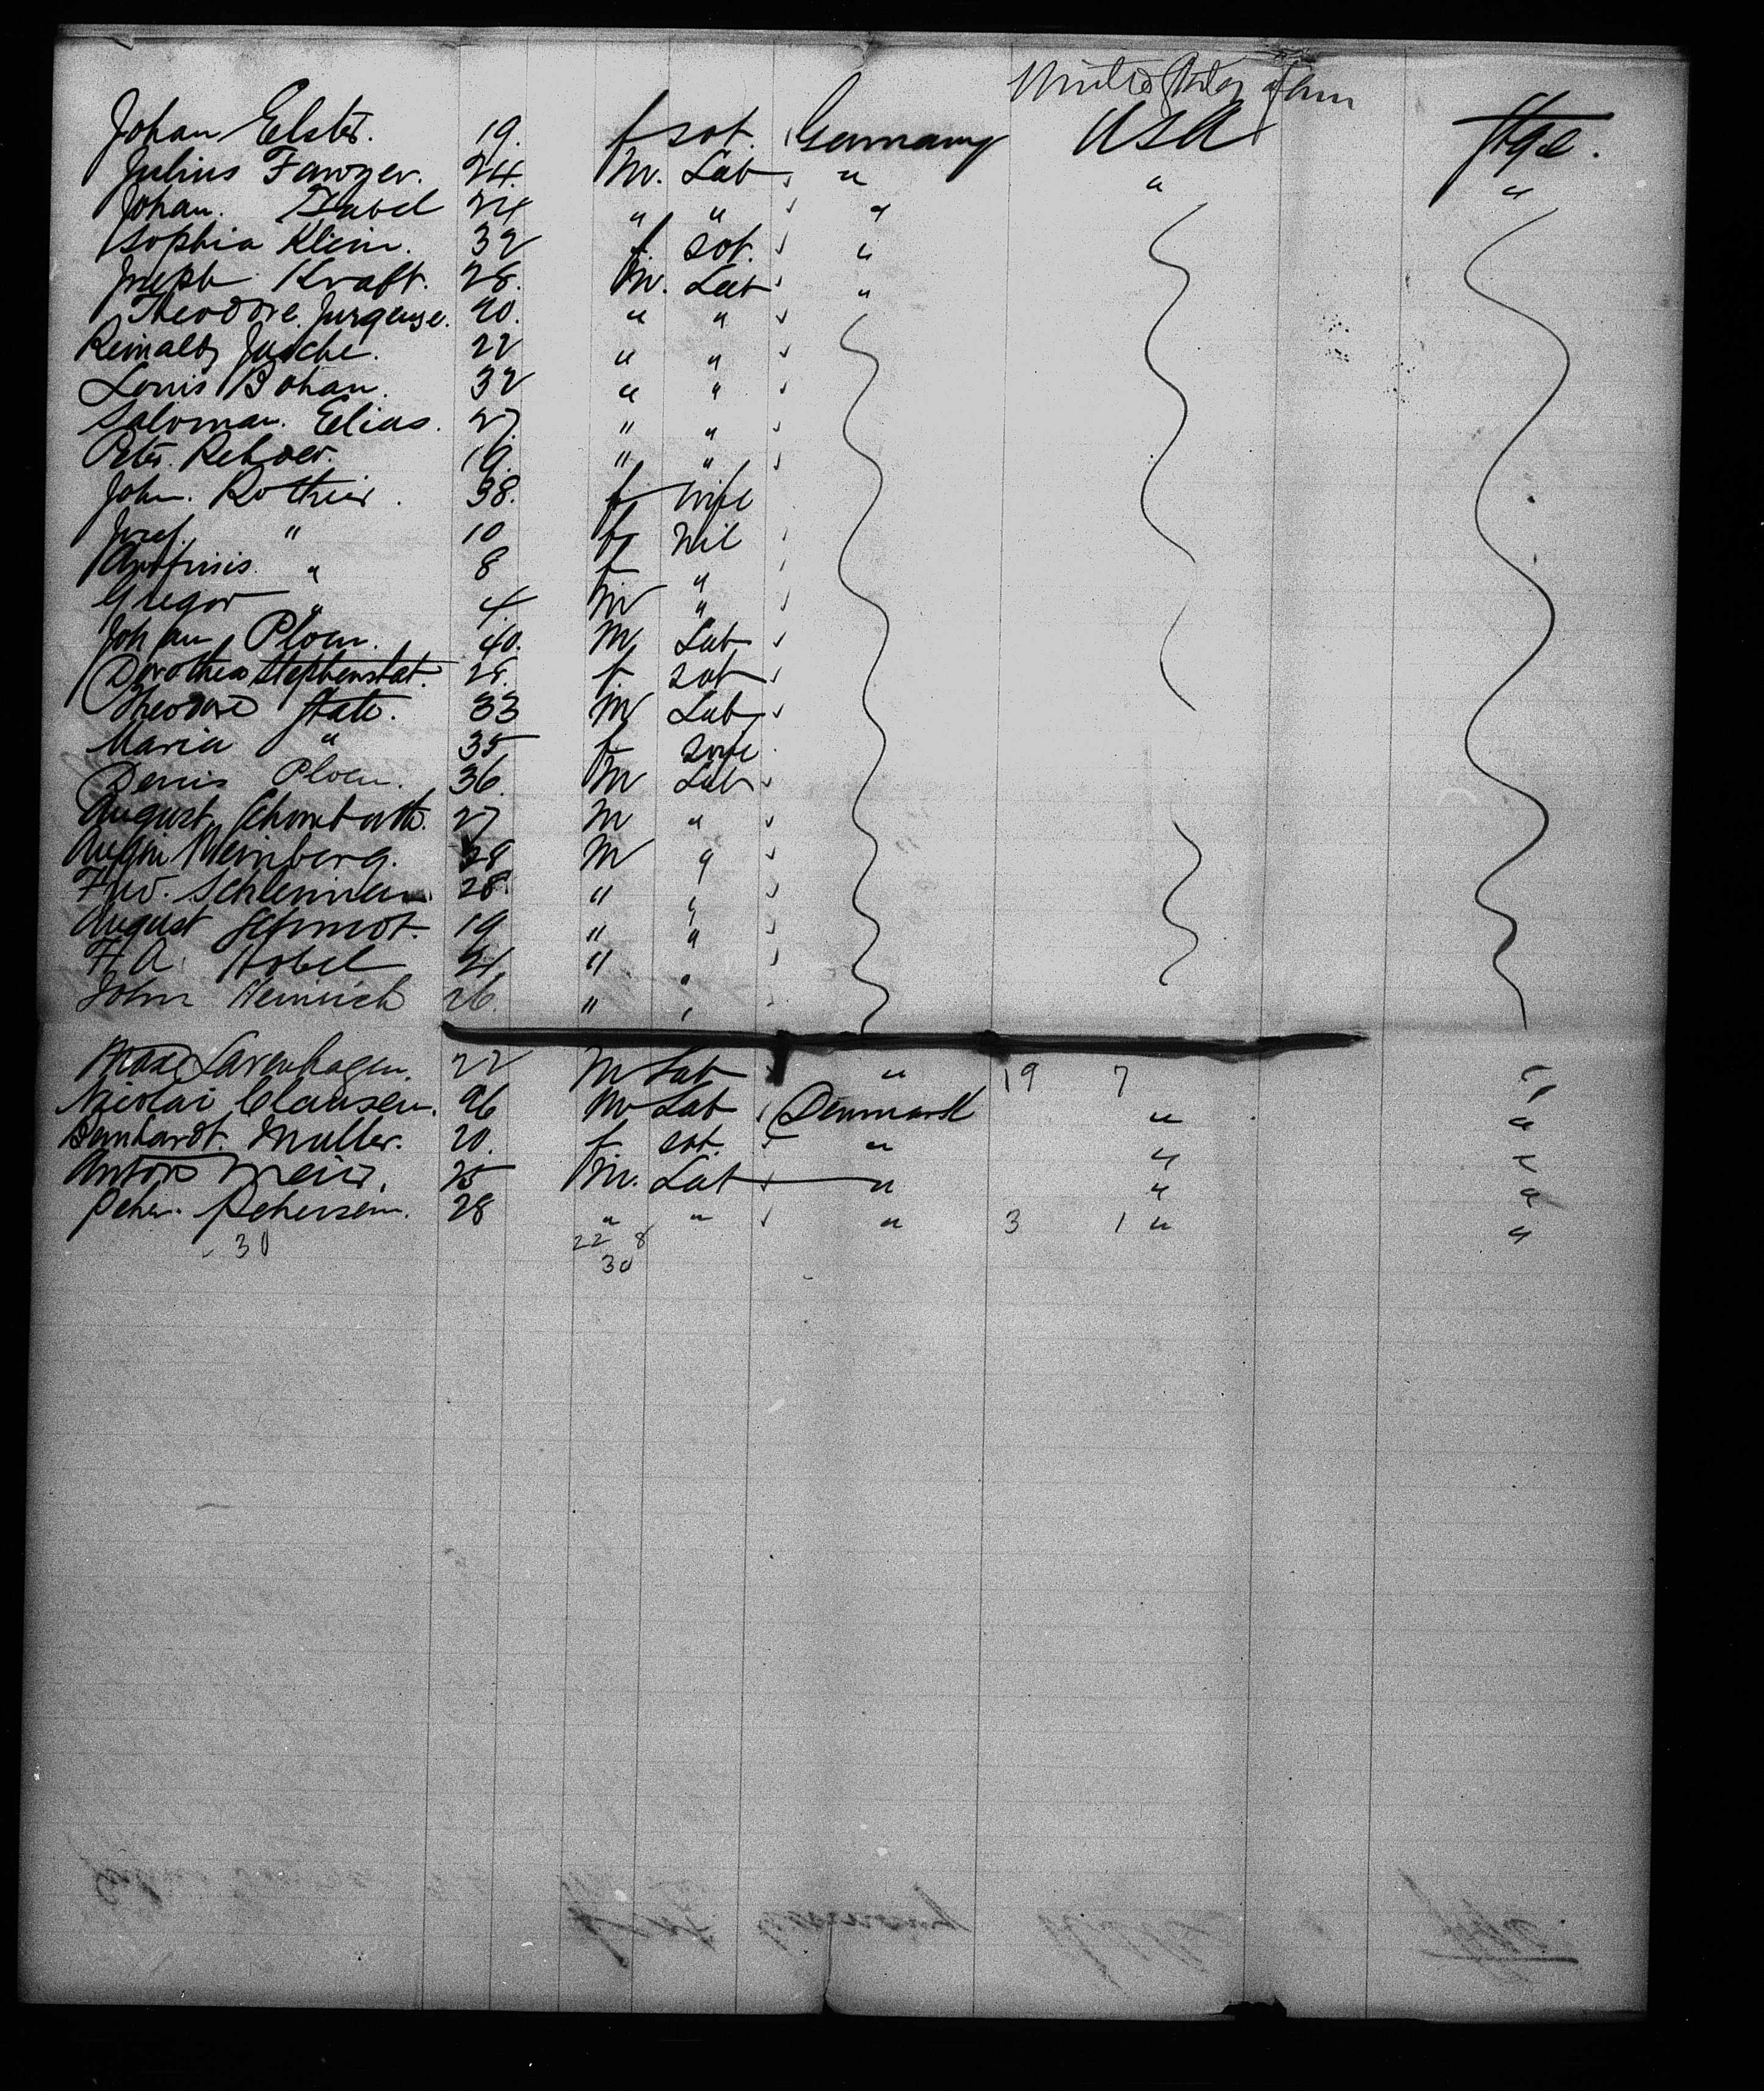 United States
Johan Elster. 19. f sot. Germany USA Stge.
Julius 24. M. Lab " " "
Johan. Zabel 24 " " "
Sophia Klein. 32 f. sot. "
Joseph Kraft. 28. M. Lab "
Theodore. Jurgense. 20. " "
Reinald 22 " "
Louis Bohan. 32 " "
Saloman. Elias. 27. " "
Peter. 19. " "
John. Rothier. 38. f wife
Josef. " 10 f Nil
" 8 f "
Gregor " 4. M "
Johan Ploen. 40. M Lab
Dorothea Stephenstat. 28. f. sot
Theodore State. 33 M Lab
Maria " 35 f wife
Denis Ploen. 36. M Lab
August 27 M "
Weinberg. 28 M "
Schlenman 28. " "
August Schmot. 19 " "
F. A. Nobel 21. " "
John Heinrich 26. " "
Max Lavenhagen. 22 M Lab " 19 7 "
Nicolai Clausen. 26 M Lab Denmark " "
Bernhardt. Muller. 20. f. sot. " " "
Anton Meier. 25 M. Lab " " "
Peter. Petersen. 28 " " " 3 1 " "
30 22 8
30